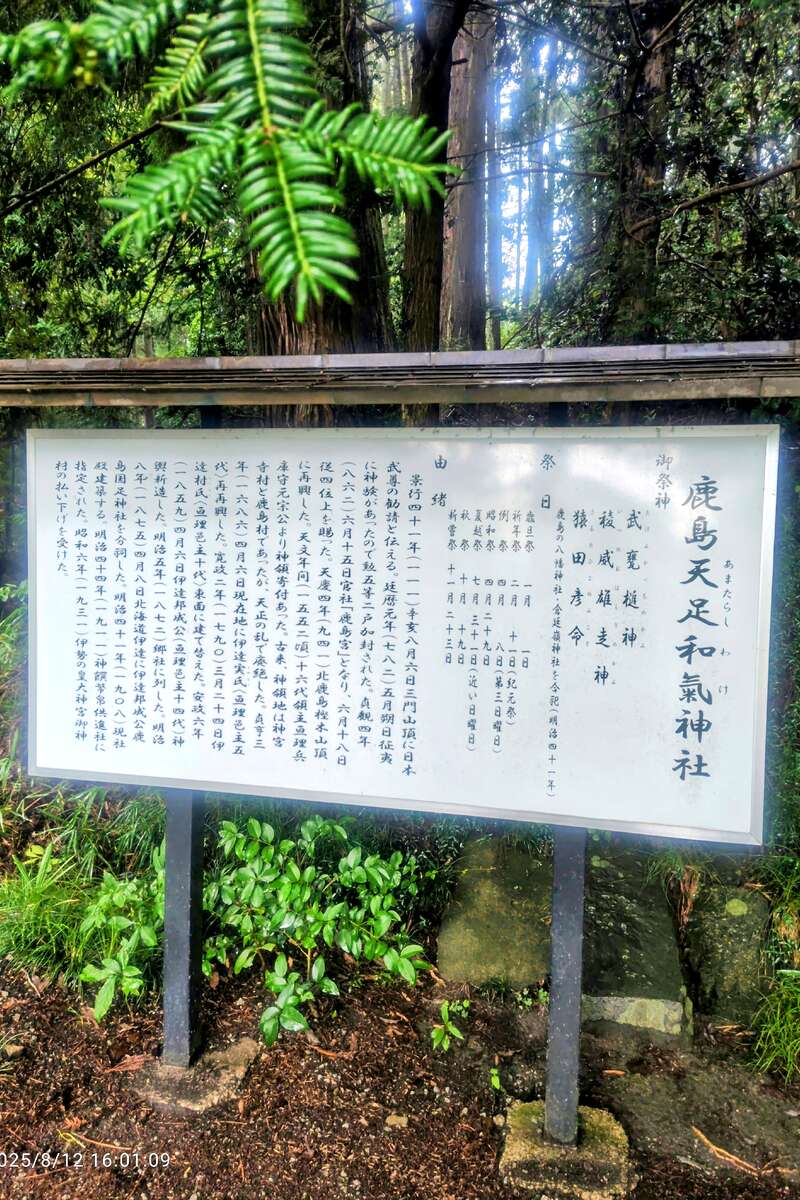 鹿島天足和氣神社
あまたらしわけ
御祭神
武甕槌神
稜威雄走神
猿田彦命
鹿島の八幡神社・倉廷嶺神社を合祀(明治四十一年)
祭日
歳旦祭 一月 一日
祈年祭 二月 十一日(紀元祭)
例祭 四月 八日(第三日曜日)
昭和祭 四月二十九日
夏越祭 七月三十一日(近い日曜日)
秋祭 十月十九日
新嘗祭 十一月二十三日
由緒
景行四十一年(一一一)辛亥八月六日三門山頂に日本
武尊の勧請と伝える。延暦元年(七八二)五月朔日征夷
に神験があったので勲五等二戸加封された。貞観四年
(八六二)六月十五日官社「鹿島宮」となり、六月十八日
従四位上を賜った。天慶四年(九四一)北鹿島椌木山頂
に再興した。天文年間(一五五二頃)十六代領主亘理兵
庫守元宗公より神領寄付あった。古来、神領地は神宮
寺村と鹿島村であったが、天正の乱で廃絶した。貞亨三
年(一六八六)四月六日現在地に伊達実氏(亘理邑主五
代)再再興した。寛政二年(一七九〇)三月二十四日伊
達村氏(亘理邑主十代)東面に建て替えた。安政六年
(一八五九)四月六日伊達邦成公(亘理邑主十四代)神
輿新造した。明治五年(一八七二)郷社に列した。明治
八年(一八七五)四月八日北海道伊達に伊達邦成公鹿
島国足神社を合祠した。明治四十一年(一九〇八)現社
殿建築する。明治四十四年(一九一一)神饌幣帛供進社に
指定された。昭和六年(一九三一)伊勢の皇大神宮御神
村の払い下げを受けた。
2025/8/12 16:01:09